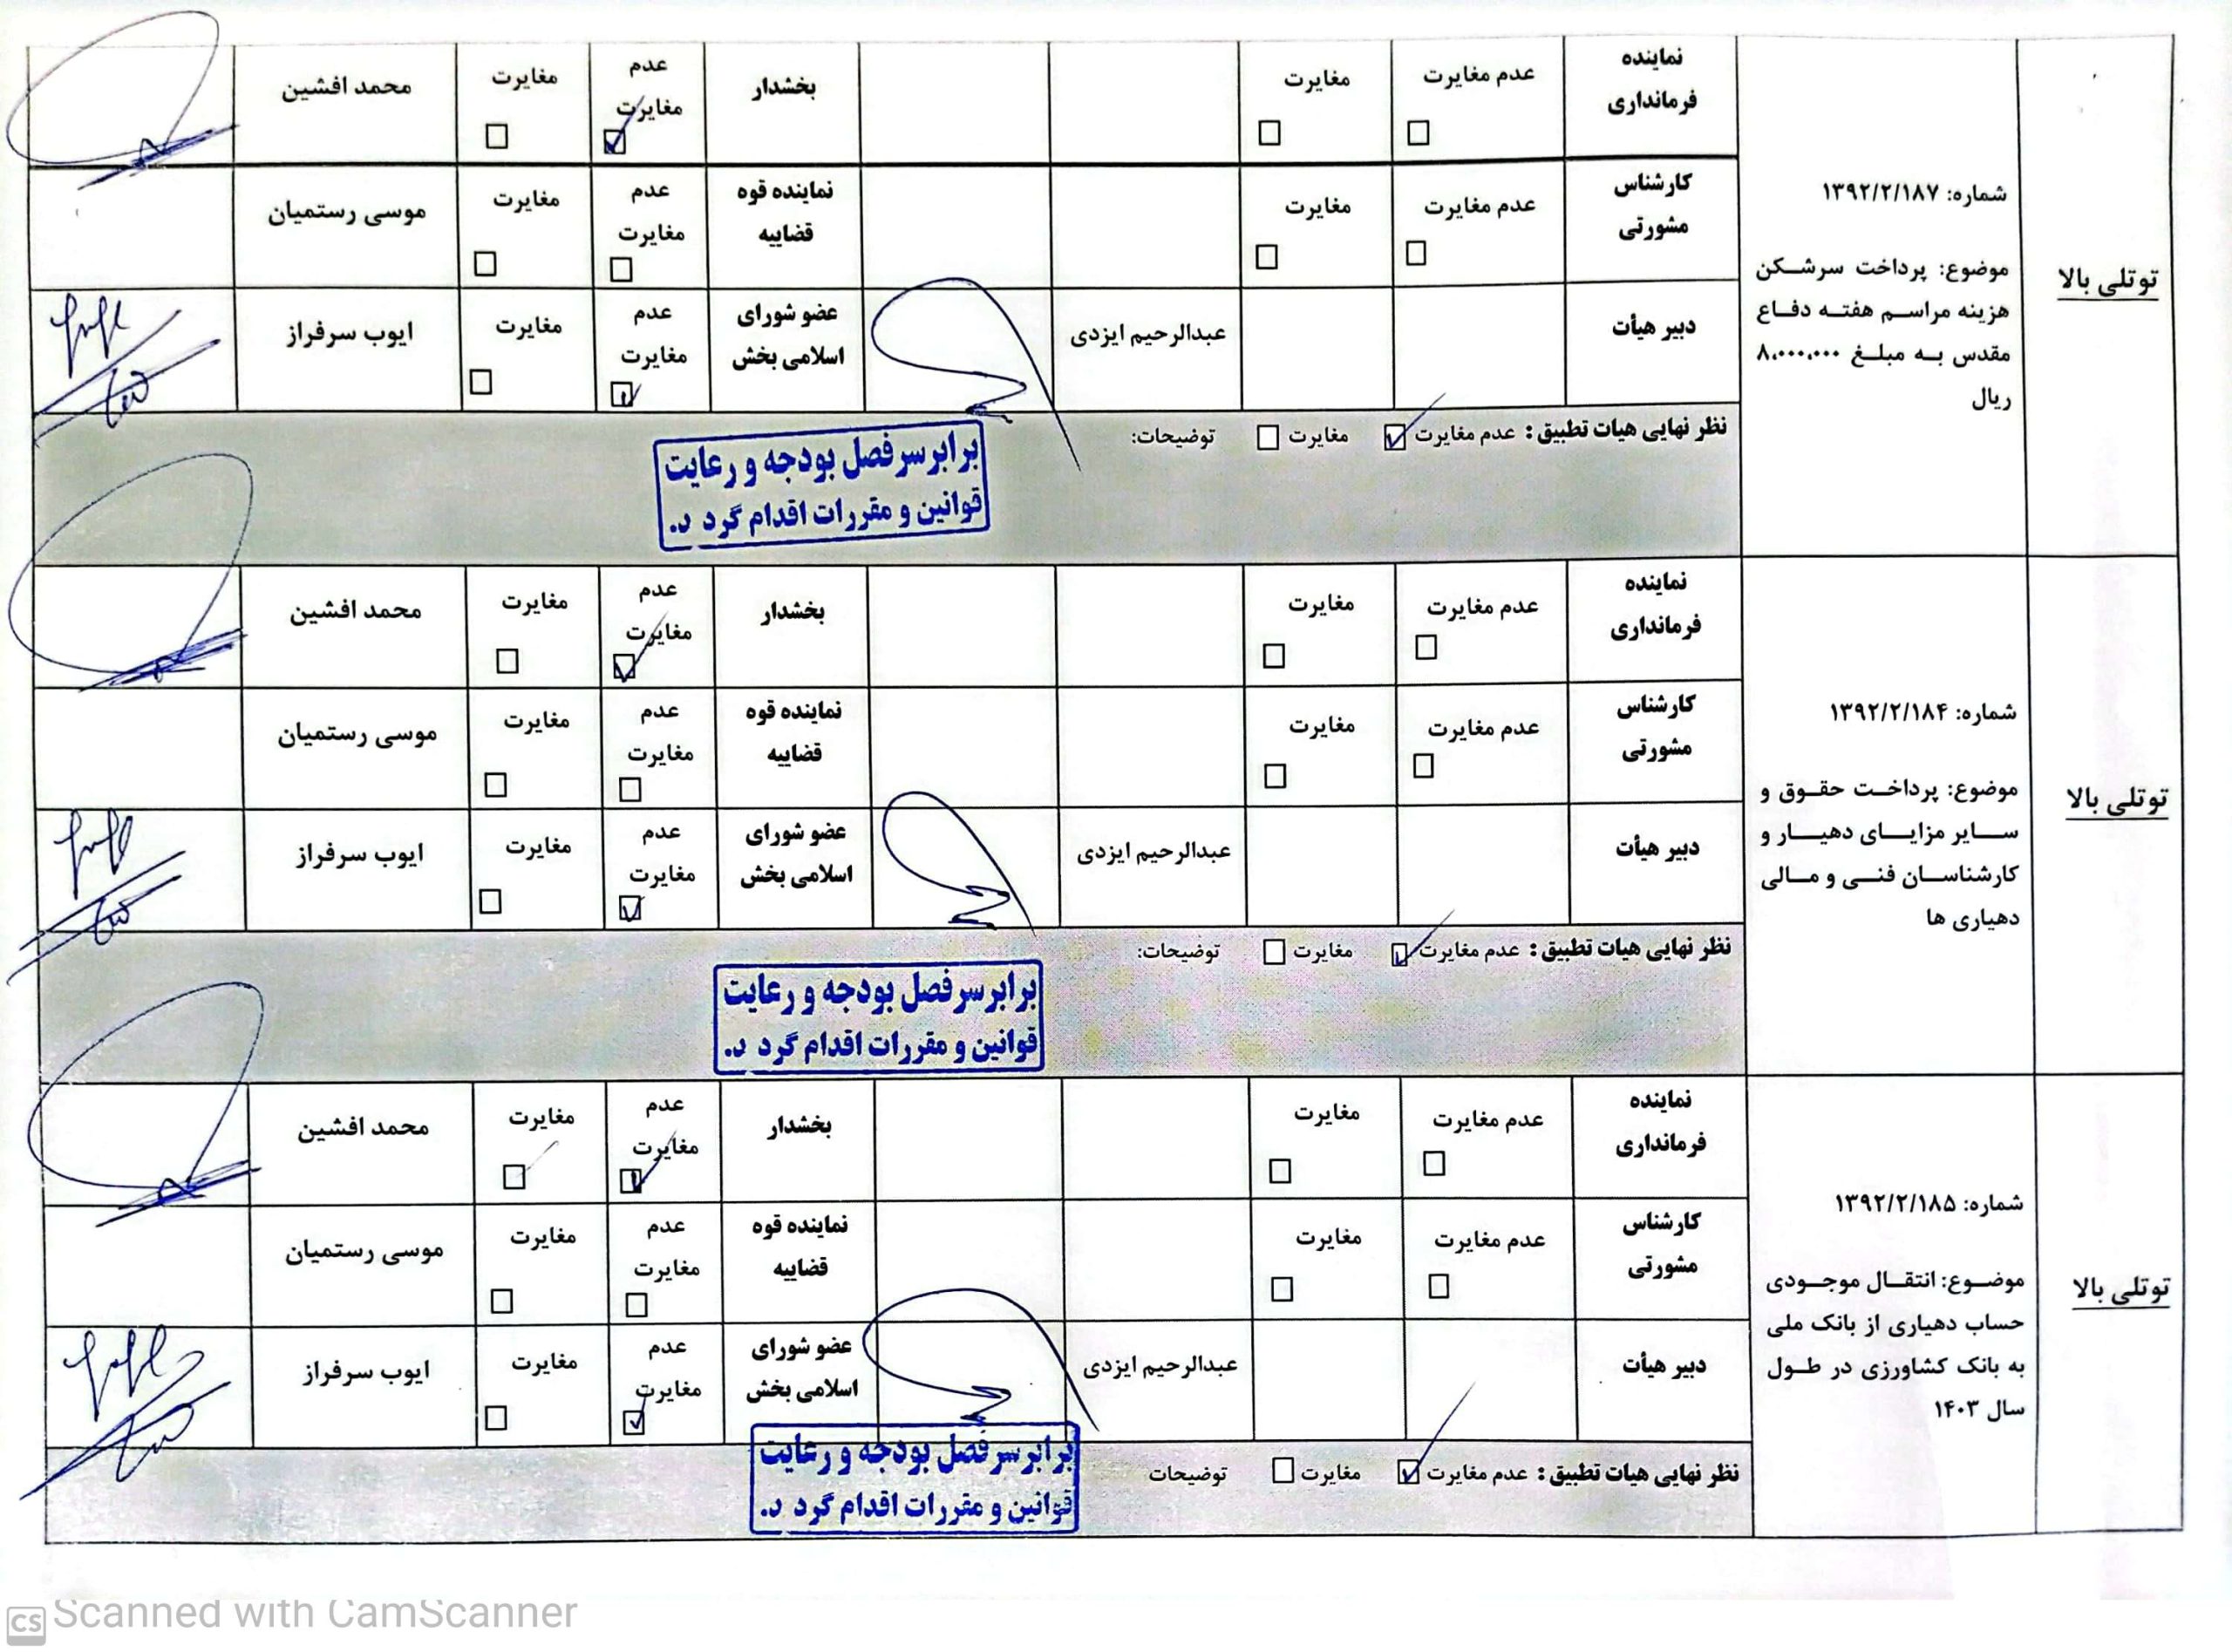 توتلی بالا
شماره: ۱۳۹۲/۲/۱۸۷
موضوع: پرداخت سرشکن
هزینه مراسم هفته دفاع
مقدس به مبلغ ۸،۰۰۰،۰۰۰
ریال
نماینده
فرمانداری
عدم مغایرت
مغایرت
بخشدار
عدم
مغایرت
مغایرت
محمد افشین
کارشناس
مشورتی
عدم مغایرت
مغایرت
نماینده قوه
قضاییه
عدم
مغایرت
مغایرت
موسی رستمیان
دبیر هیأت
عبدالرحیم ایزدی
عضو شورای
اسلامی بخش
عدم
مغایرت
مغایرت
ایوب سرفراز
نظر نهایی هیات تطبیق: عدم مغایرت مغایرت توضیحات:
برابر سرفصل بودجه و رعایت
قوانین و مقررات اقدام گردد.
توتلی بالا
شماره: ۱۳۹۲/۲/۱۸۴
موضوع: پرداخت حقوق و
سایر مزایای دهیار و
کارشناسان فنی و مالی
دهیاری ها
نماینده
فرمانداری
عدم مغایرت
مغایرت
بخشدار
عدم
مغایرت
مغایرت
محمد افشین
کارشناس
مشورتی
عدم مغایرت
مغایرت
نماینده قوه
قضاییه
عدم
مغایرت
مغایرت
موسی رستمیان
دبیر هیأت
عبدالرحیم ایزدی
عضو شورای
اسلامی بخش
عدم
مغایرت
مغایرت
ایوب سرفراز
نظر نهایی هیات تطبیق: عدم مغایرت مغایرت توضیحات:
برابر سرفصل بودجه و رعایت
قوانین و مقررات اقدام گردد.
توتلی بالا
شماره: ۱۳۹۲/۲/۱۸۵
موضوع: انتقال موجودی
حساب دهیاری از بانک ملی
به بانک کشاورزی در طول
سال ۱۴۰۳
نماینده
فرمانداری
عدم مغایرت
مغایرت
بخشدار
عدم
مغایرت
مغایرت
محمد افشین
کارشناس
مشورتی
عدم مغایرت
مغایرت
نماینده قوه
قضاییه
عدم
مغایرت
مغایرت
موسی رستمیان
دبیر هیأت
عبدالرحیم ایزدی
عضو شورای
اسلامی بخش
عدم
مغایرت
مغایرت
ایوب سرفراز
نظر نهایی هیات تطبیق: عدم مغایرت مغایرت توضیحات
برابر سرفصل بودجه و رعایت
قوانین و مقررات اقدام گردد.
CS Scanned with CamScanner